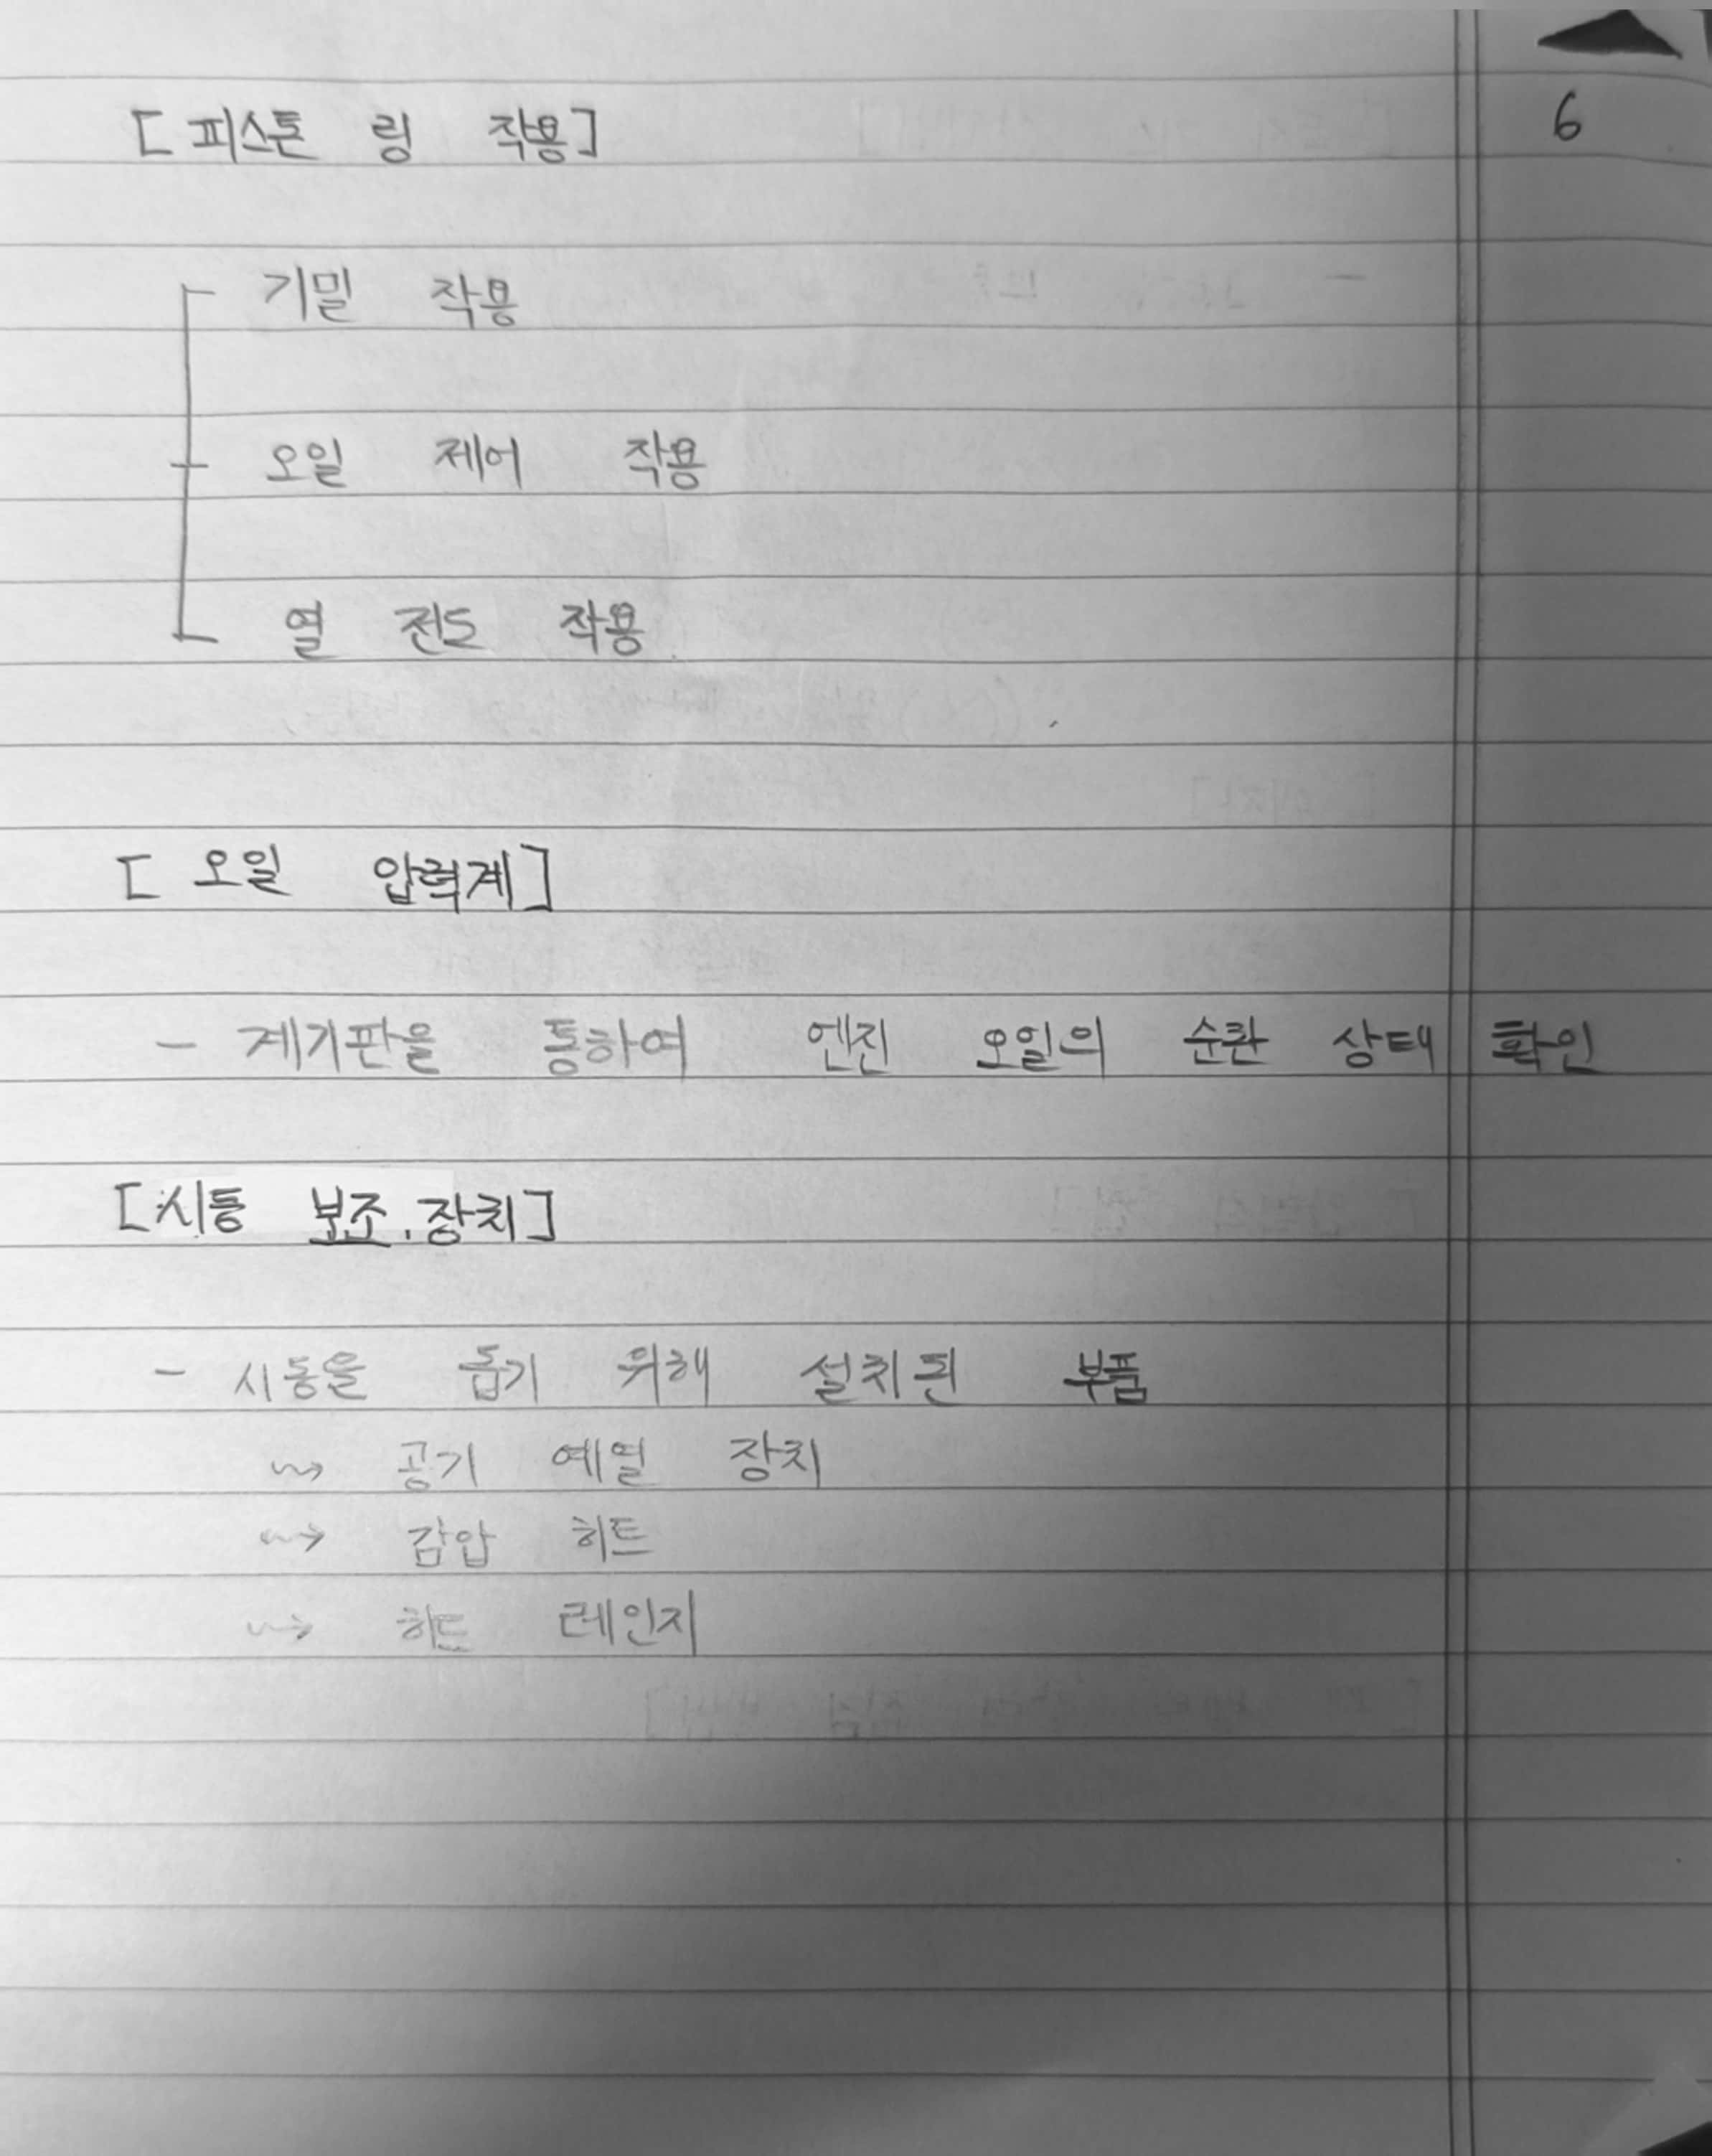 6
[피스톤 링 작용]
기밀 작용
오일 제어 작용
열 전도 작용
[오일 압력계]
- 계기판을 통하여 엔진 오일의 순환 상태 확인
[시동 보조 장치]
- 시동을 돕기 위해 설치된 부품
⇝ 공기 예열 장치
⇝ 감압 히트
⇝ 히트 레인지